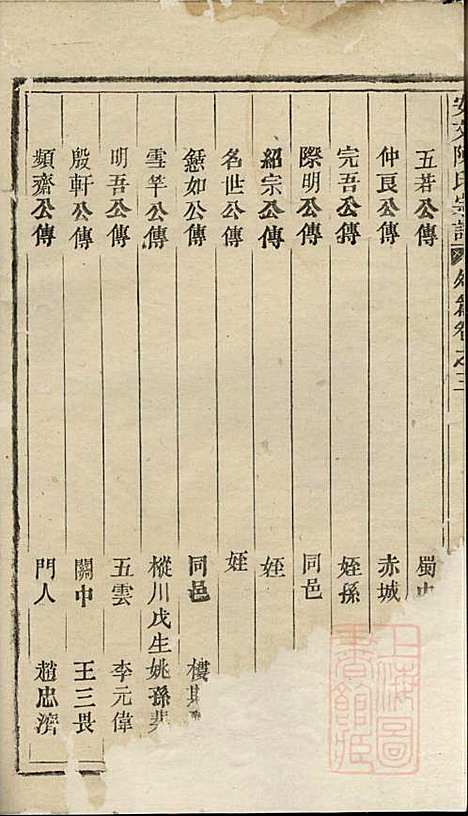 安文陳氏宗譜 外篇卷之三
五若公傳 蜀中
仲良公傳 赤城
完吾公傳 姪孫
際明公傳 同邑
紹宗公傳 姪
名世公傳 姪
如公傳 同邑 樓
雪竿公傳 樅川戊生姚孫棐
明吾公傳 五雲 李元偉
殷軒公傳 關中 王三畏
頻齋公傳 門人 趙忠濟
上海圖書館藏